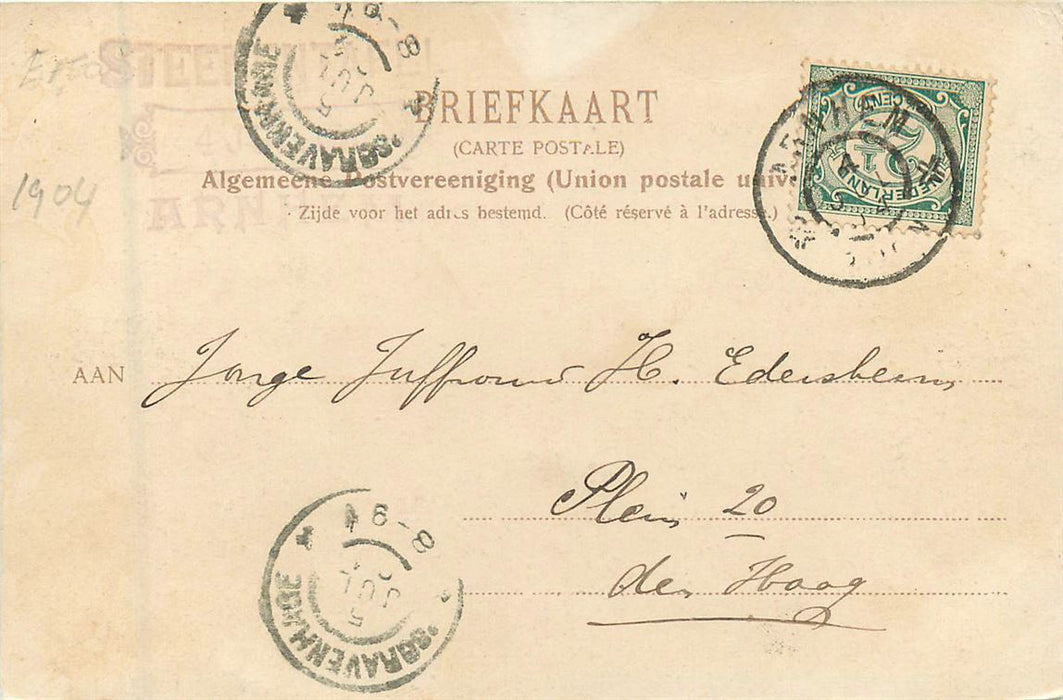 BRIEFKAART
(CARTE POSTALE)
Algemeene Postvereeniging (Union postale univ
Zijde voor het adres bestemd. (Côté réservé à l'adresse.)
1904
NEDERLAND
2½
CENT
ARNHEM
'SGRAVENHAGE
8-9
5
JUL
AAN Jonge Juffrouw H. Edersheim
Plein 20
den Haag
'SGRAVENHAGE
8-9
5
JUL